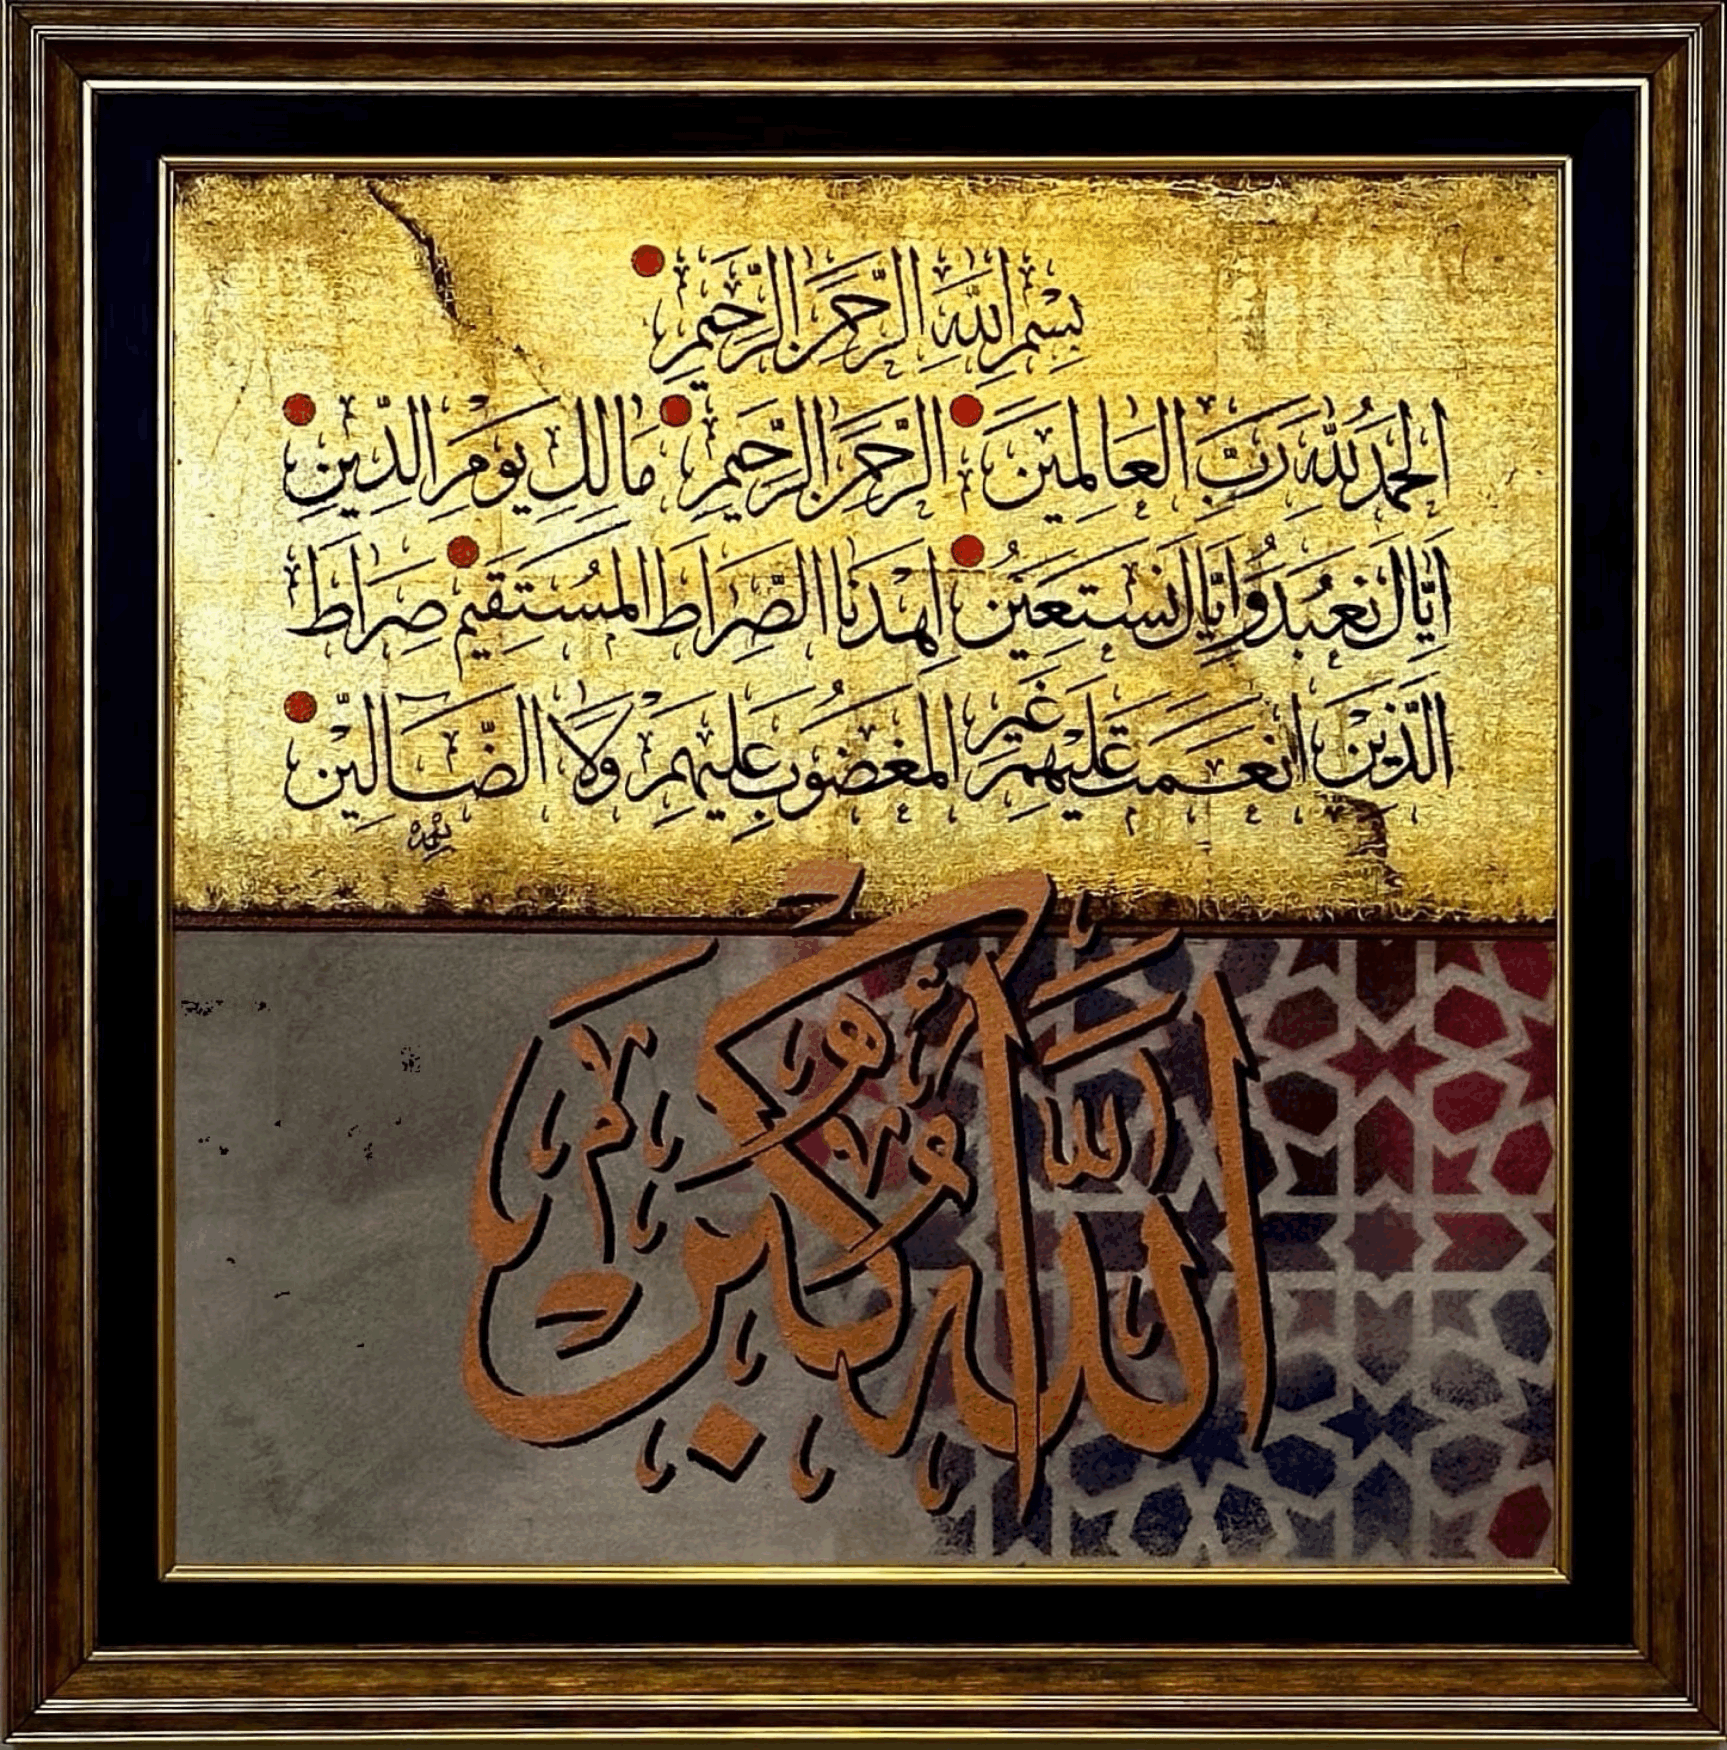 بِسْمِ اللَّهِ الرَّحْمَنِ الرَّحِيمِ
الحَمْدُ لِلَّهِ رَبِّ العَالَمِينَ الرَّحْمَنِ الرَّحِيمِ مَالِكِ يَوْمِ الدِّينِ
اِيَّاكَ نَعْبُدُ وَاِيَّاكَ نَسْتَعِينُ اِهْدِنَا الصِّرَاطَ المُسْتَقِيمَ صِرَاطَ
الَّذِينَ اَنْعَمْتَ عَلَيْهِمْ غَيْرِ المَغْضُوبِ عَلَيْهِمْ وَلَا الضَّالِّينَ
اللَّهُ أَكْبَر